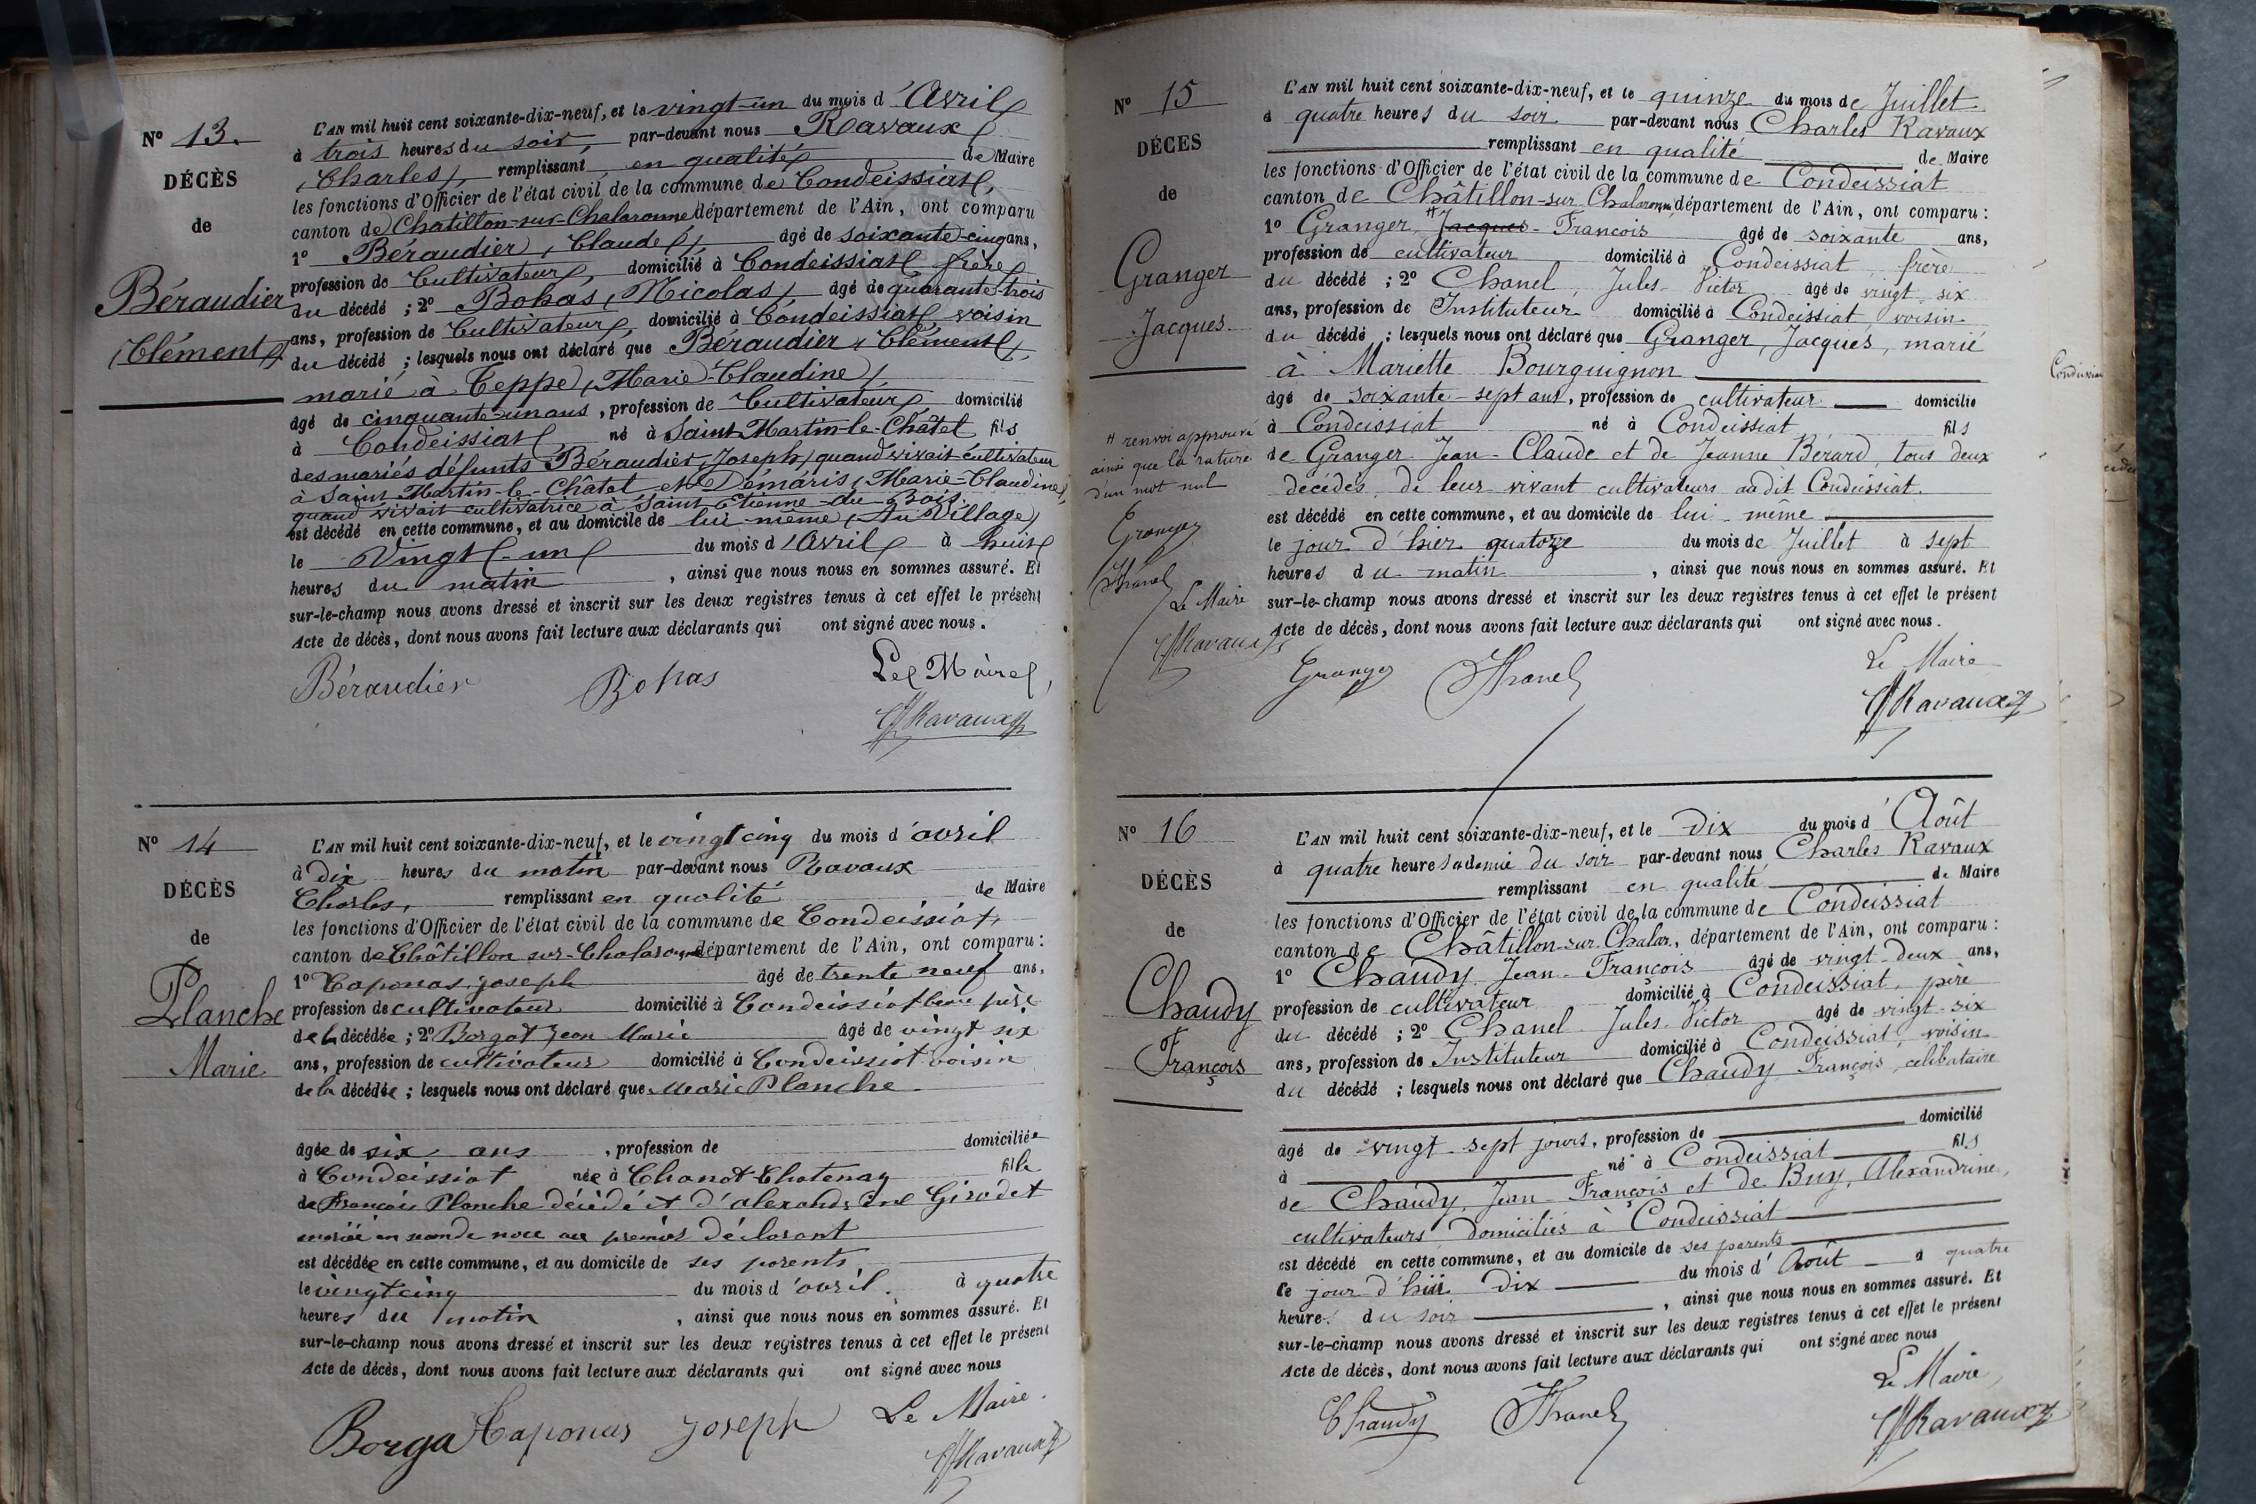 N° 13.
DÉCÈS
de
Béraudier
Clément
L'AN mil huit cent soixante-dix-neuf, et le vingt-un du mois d'Avril
à trois heures du soir, par-devant nous Ravaux
Charles, remplissant en qualité de Maire
les fonctions d'Officier de l'état civil de la commune de Condeissiat,
canton de Chatillon-sur-Chalaronne département de l'Ain, ont comparu
1° Béraudier, Claude, âgé de soixante-cinq ans,
profession de Cultivateur, domicilié à Condeissiat frère
du décédé ; 2° Bohas, Nicolas, âgé de quarante-trois
ans, profession de Cultivateur, domicilié à Condeissiat voisin
du décédé ; lesquels nous ont déclaré que Béraudier, Clément,
marié à Teppe, Marie-Claudine,
âgé de cinquante-un ans, profession de Cultivateur domicilié
à Condeissiat né à Saint Martin-le-Châtel fils
des mariés défunts Béraudier, Joseph, quand vivait cultivateur
à Saint Martin-le-Châtel et Démáris, Marie-Claudine,
quand vivait cultivatrice à Saint Etienne-du-Bois.
est décédé en cette commune, et au domicile de lui-même, (Au Village)
le Vingt-un du mois d'Avril à huit
heures du matin, ainsi que nous nous en sommes assuré. Et
sur-le-champ nous avons dressé et inscrit sur les deux registres tenus à cet effet le présent
Acte de décès, dont nous avons fait lecture aux déclarants qui ont signé avec nous.
Béraudier Bohas Le Maire,
Ravaux
N° 14
DÉCÈS
de
Planche
Marie
L'AN mil huit cent soixante-dix-neuf, et le vingt cinq du mois d'avril
à Dix heures du matin par-devant nous Ravaux
Charles, remplissant en qualité de Maire
les fonctions d'Officier de l'état civil de la commune de Condeissiat,
canton de Châtillon sur-Chalaronne département de l'Ain, ont comparu :
1° Caponas joseph âgé de trente neuf ans,
profession de cultivateur domicilié à Condeissiat beau père
de la décédée ; 2° Borgat Jean Marie âgé de vingt six
ans, profession de cultivateur domicilié à Condeissiat voisin
de la décédée ; lesquels nous ont déclaré que Marie Planche
âgée de six ans, profession de domiciliée
à Condeissiat née à Chanoz-Chatenay fille
de François Planche décédé et d'alexandrine Girodet
mariée en seconde noce au premier déclarant
est décédée en cette commune, et au domicile de ses parents
le vingt cinq du mois d'avril. à quatre
heures du matin, ainsi que nous nous en sommes assuré. Et
sur-le-champ nous avons dressé et inscrit sur les deux registres tenus à cet effet le présent
Acte de décès, dont nous avons fait lecture aux déclarants qui ont signé avec nous
Borga Caponas joseph Le Maire.
Ravaux
N° 15
DÉCES
de
Granger
Jacques
# renvoi approuvé
ainsi que la rature
d'un mot nul
Granger
Chanel
Le Maire
Ravaux
L'AN mil huit cent soixante-dix-neuf, et le quinze du mois de Juillet
à quatre heures du soir par-devant nous Charles Ravaux
remplissant en qualité de Maire
les fonctions d'Officier de l'état civil de la commune de Condeissiat
canton de Châtillon-sur Chalaronne, département de l'Ain, ont comparu :
1° Granger, # Jacques-François âgé de soixante ans,
profession de cultivateur domicilié à Condeissiat, frère
du décédé ; 2° Chanel, Jules-Victor âgé de vingt-six
ans, profession de Instituteur domicilié à Condeissiat, voisin
du décédé ; lesquels nous ont déclaré que Granger, Jacques, marié
à Mariette Bourguignon
âgé de soixante-sept ans, profession de cultivateur domicilié
à Condeissiat né à Condeissiat fils
de Granger Jean-Claude et de Jeanne Bérard, tous deux
décédés, de leur vivant cultivateurs audit Condeissiat.
est décédé en cette commune, et au domicile de lui-même
le jour d'hier quatorze du mois de Juillet à sept
heures du matin, ainsi que nous nous en sommes assuré. Et
sur-le-champ nous avons dressé et inscrit sur les deux registres tenus à cet effet le présent
Acte de décès, dont nous avons fait lecture aux déclarants qui ont signé avec nous.
Granger Chanel Le Maire
Ravaux
N° 16
DÉCÈS
de
Chaudy
François
L'AN mil huit cent soixante-dix-neuf, et le Dix du mois d'Août
à quatre heures & demie du soir par-devant nous Charles Ravaux
remplissant en qualité de Maire
les fonctions d'Officier de l'état civil de la commune de Condeissiat
canton de Châtillon-sur-Chalar., département de l'Ain, ont comparu :
1° Chaudy, Jean-François âgé de vingt-deux ans,
profession de cultivateur domicilié à Condeissiat, père
du décédé ; 2° Chanel Jules-Victor âgé de vingt-six
ans, profession de Instituteur domicilié à Condeissiat, voisin
du décédé ; lesquels nous ont déclaré que Chaudy François, célibataire
âgé de vingt-sept jours, profession de domicilié
à né à Condeissiat fils
de Chaudy, Jean-François et de Buy, Alexandrine,
cultivateurs domiciliés à Condeissiat
est décédé en cette commune, et au domicile de ses parents
le jour d'hui Dix du mois d'Août à quatre
heures du soir, ainsi que nous nous en sommes assuré. Et
sur-le-champ nous avons dressé et inscrit sur les deux registres tenus à cet effet le présent
Acte de décès, dont nous avons fait lecture aux déclarants qui ont signé avec nous
Chaudy Chanel Le Maire,
Ravaux